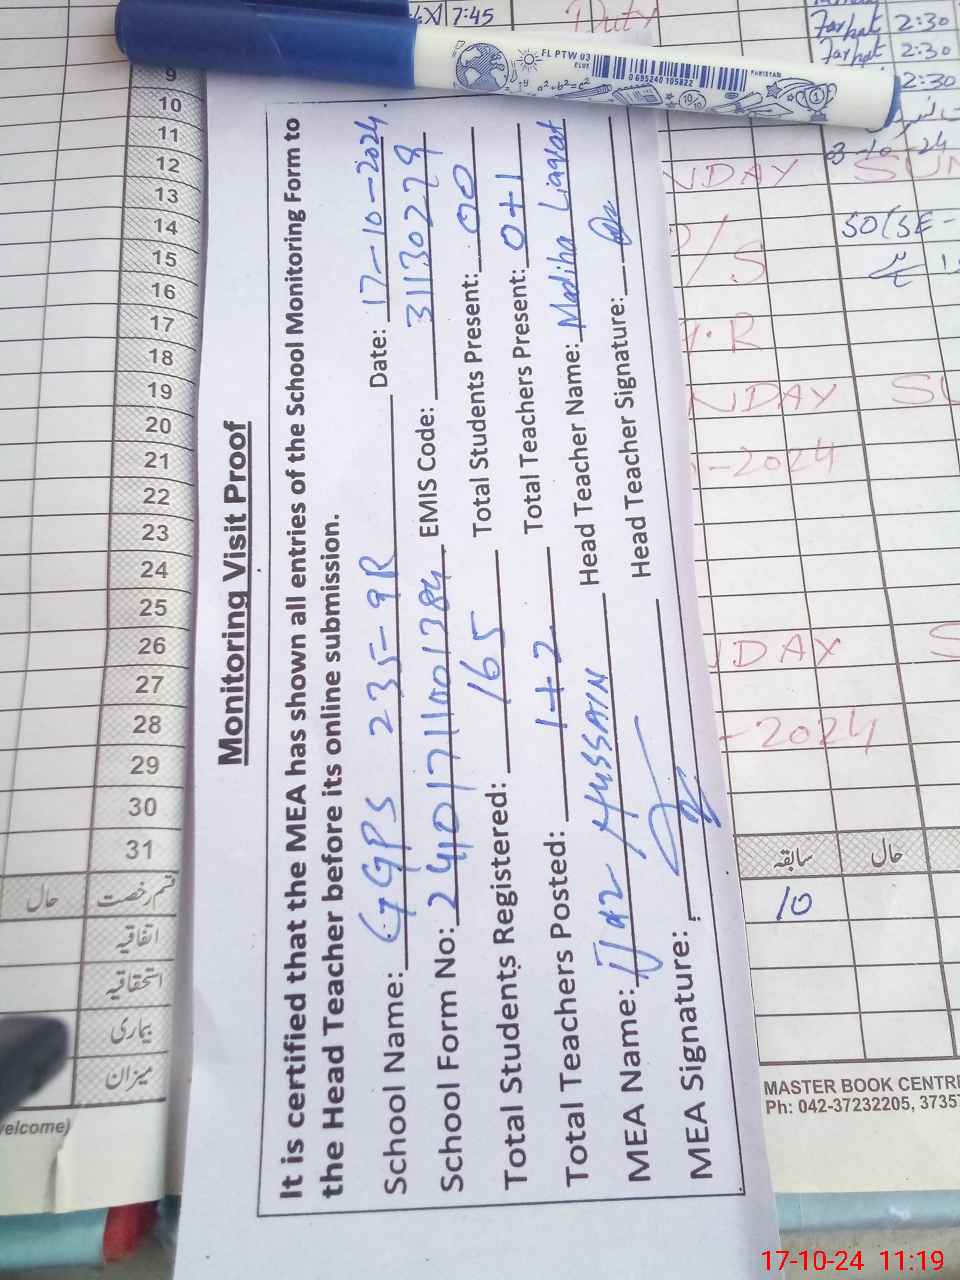 Monitoring Visit Proof
It is certified that the MEA has shown all entries of the School Monitoring Form to
the Head Teacher before its online submission.
School Name: GGPS 235-9R Date: 17-10-2024
School Form No: 2410171001384 EMIS Code: 31130278
Total Students Registered: 165 Total Students Present: 00
Total Teachers Posted: 1+2 Total Teachers Present: 0+1
MEA Name: Ijaz HUSSAIN Head Teacher Name: Madiha Liaqat
MEA Signature: Head Teacher Signature:
FL PTW 03
BLUE
PAKISTAN
a²+b²=c²
10/10
1
7:45
Duty
Farhat 2:30
Farhat 2:30
2:30
8-10-24
NDAY SUN
P/S
50(SE-
H.R
NDAY SU
-2024
NDAY S
-2024
9
10
11
12
13
14
15
16
17
18
19
20
21
22
23
24
25
26
27
28
29
30
31
حال قسم رخصت
اتفاقیہ
استحقاقیہ
بیماری
میزان
سابقہ حال
10
MASTER BOOK CENTRE
Ph: 042-37232205, 3735
welcome)
17-10-24 11:19